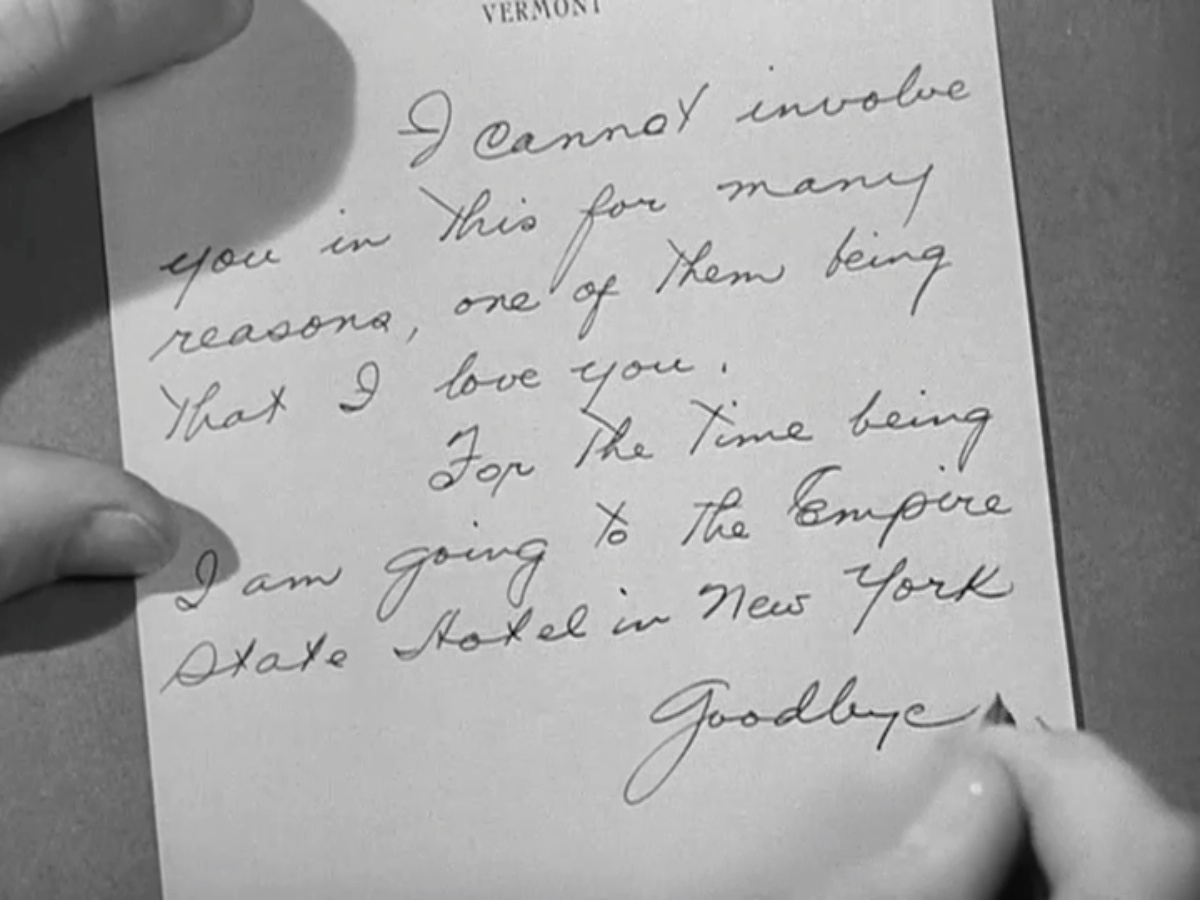 VERMONT
I cannot involve
you in this for many
reasons, one of them being
that I love you.
For the time being
I am going to the Empire
State Hotel in New York
Goodbye